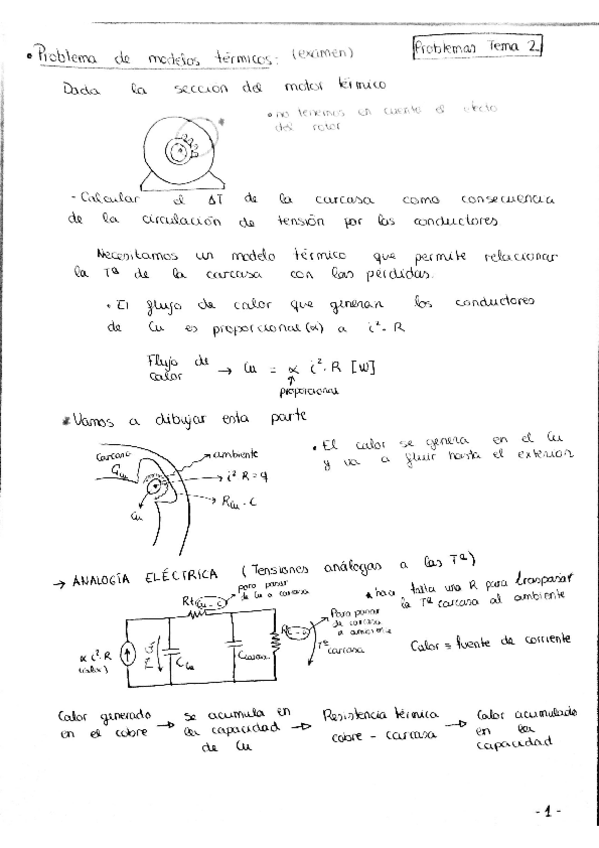 • Problema de modelos térmicos: (examen)
Problemas Tema 2
Dada la sección del motor térmico
• no tenemos en cuenta el efecto
del rotor
- Calcular el ΔT de la carcasa como consecuencia
de la circulación de tensión por los conductores
Necesitamos un modelo térmico que permite relacionar
la Tª de la carcasa con las pérdidas.
• El flujo de calor que generan los conductores
de Cu es proporcional (α) a i²·R
Flujo de
calor → Cu = α i²·R [W]
proporcional
Vamos a dibujar esta parte
carcasa
ambiente
i²·R = q
RCu-C
Cu
• El calor se genera en el Cu
y va a fluir hasta el exterior
→ ANALOGÍA ELÉCTRICA (Tensiones análogas a las Tª)
para pasar
de Cu a carcasa
RtCu-C
hacía falta una R para traspasar
la Tª carcasa al ambiente
Para pasar
de carcasa
a ambiente
Tª
carcasa
α i²·R
CCu
Calor = fuente de corriente
Calor generado
en el cobre
→ se acumula en
la capacidad
de Cu
→ Resistencia térmica
cobre - carcasa
→ Calor acumulado
en la
capacidad
- 1 -